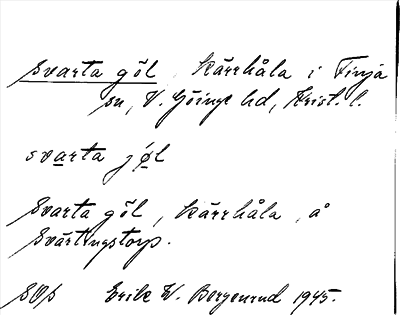 Svarta göl, Kärrhåla i Finja
sn, V. Göinge hd, Krist. l.
svarta jøl
Svarta göl, Kärrhåla, å
Svärtingstorp.
SOß Erik W. Bergenrud 1945.